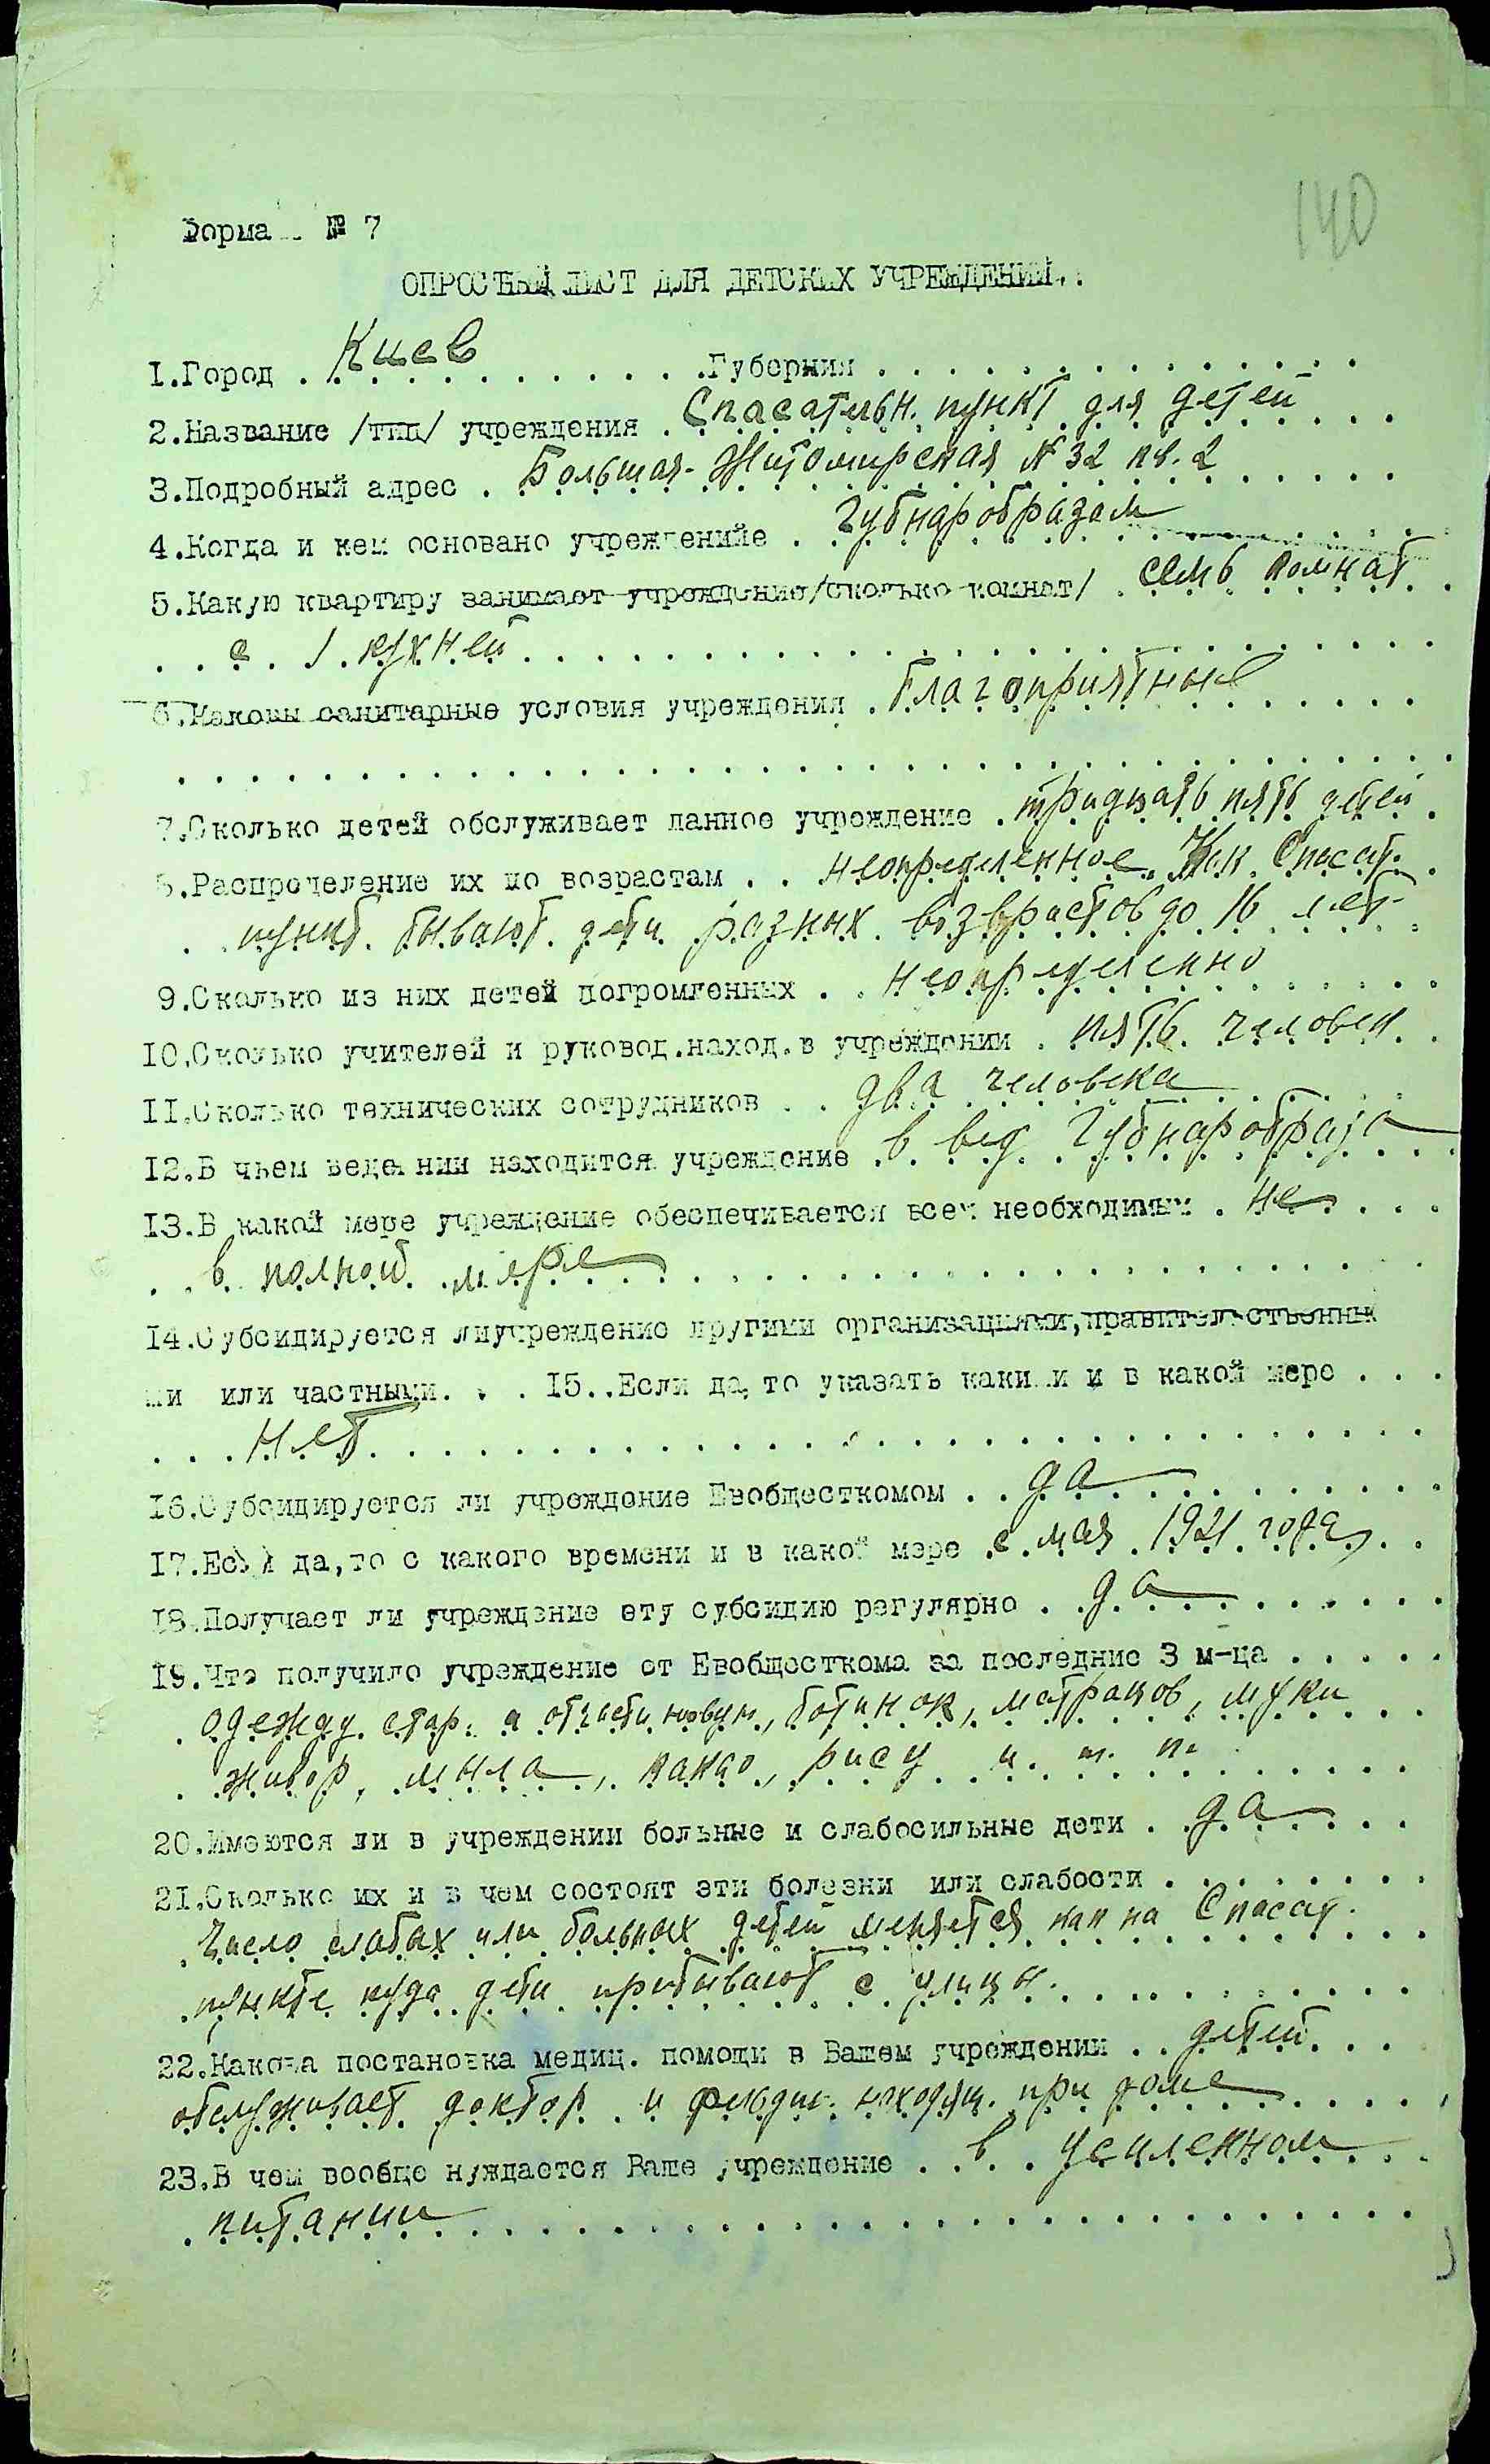 140
Форма № 7
ОПРОСНЫЙ ЛИСТ ДЛЯ ДЕТСКИХ УЧРЕЖДЕНИЙ.
1.Город . Киев . . . . . Губерния . . . . .
2.Название /тип/ учреждения . Спасательн. пункт для детей . . .
3.Подробный адрес . Большая-Житомирская № 32 кв. 2 . . . .
4.Когда и кем основано учреждениие . Губнаробразом . . . .
5.Какую квартиру занимает учреждение/сколько комнат/ . семь комнат . .
. . с . 1 . кухней . . . . .
6.Каковы санитарные условия учреждения . благоприятные . . . .
. . . . . . . . . .
7.Сколько детей обслуживает данное учреждение . тридцать пять детей .
8.Распределение их по возрастам . . неопределенное. Как Спасат. .
. . пункт. бывают дети разных возврастов до 16 лет .
9.Сколько из них детей погромленных . . неопределенно . . . .
10.Сколько учителей и руковод.наход.в учреждении . пять человек . .
11.Сколько технических сотрудников . . два человека . . . .
12.В чьем ведении находится учреждение . в вед. Губнаробраза . . .
13.В какой мере учреждение обеспечивается всем необходимым . не . . . .
. . в полной мере . . . . .
14.Субсидируется лиучреждение другими организациями,правительственны
ми или частными. . . 15..Если да,то указать какими и в какой мере . . .
. . . Нет . . . . .
16.Субсидируется ли учреждение Евобщесткомом . . да . . . . .
17.Если да,то с какого времени и в какой мере . с мая 1921 года . .
18.Получает ли учреждение эту субсидию регулярно . . да . . . . .
19.Что получило учреждение от Евобщесткома за последние 3 м-ца . . . . .
. одежду стар. а отчасти новую, ботинок, матрацов, муки . . .
. . живор, мыла, какао, рису и т. п. . . . .
20.Имеются ли в учреждении больные и слабосильные дети . . да . . .
21.Сколько их и в чем состоят эти болезни или слабости . . . . .
. Число слабых или больных детей меняется как на Спасат. . .
. пункте куда дети прибывают с улицы. . . . .
22.Какова постановка медиц. помощи в Вашем учреждении . . детей . . .
обслуживает доктор и фельдш. находящ. при доме . . . .
23.В чем вообще нуждается Ваше учреждение . . в . усиленном . . .
. питании . . . . .